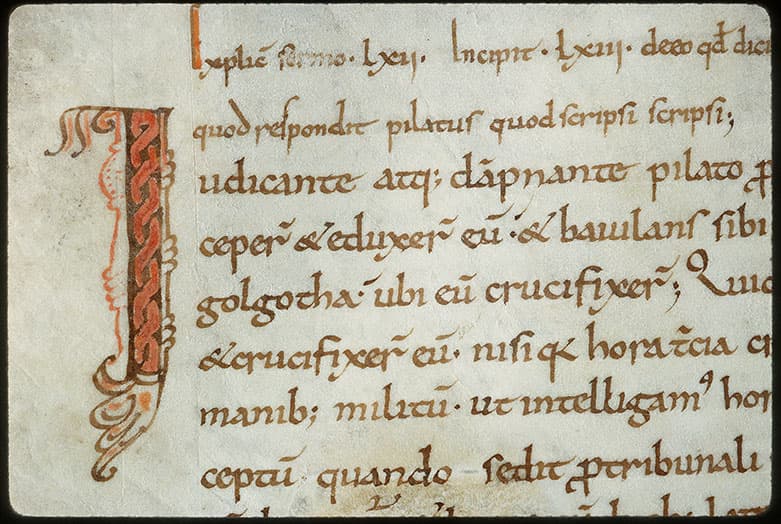 Explic̄ sermo· lxii· Incipit · lxiii · de eo qđ dici
quod respondit pilatus quod scripsi scripsi;
Iudicante atq; dāpnante pilato ꝓ
ceper̄ & eduxer̄ eū · & baiulans sibi
golgotha · ubi eū crucifixer̄; Quid
& crucifixer̄ eū · nisi qꝫ hora t̄cia cr
manib; militū · ut intelligamꝰ hor
ceptū quando sedit ꝓ tribunali